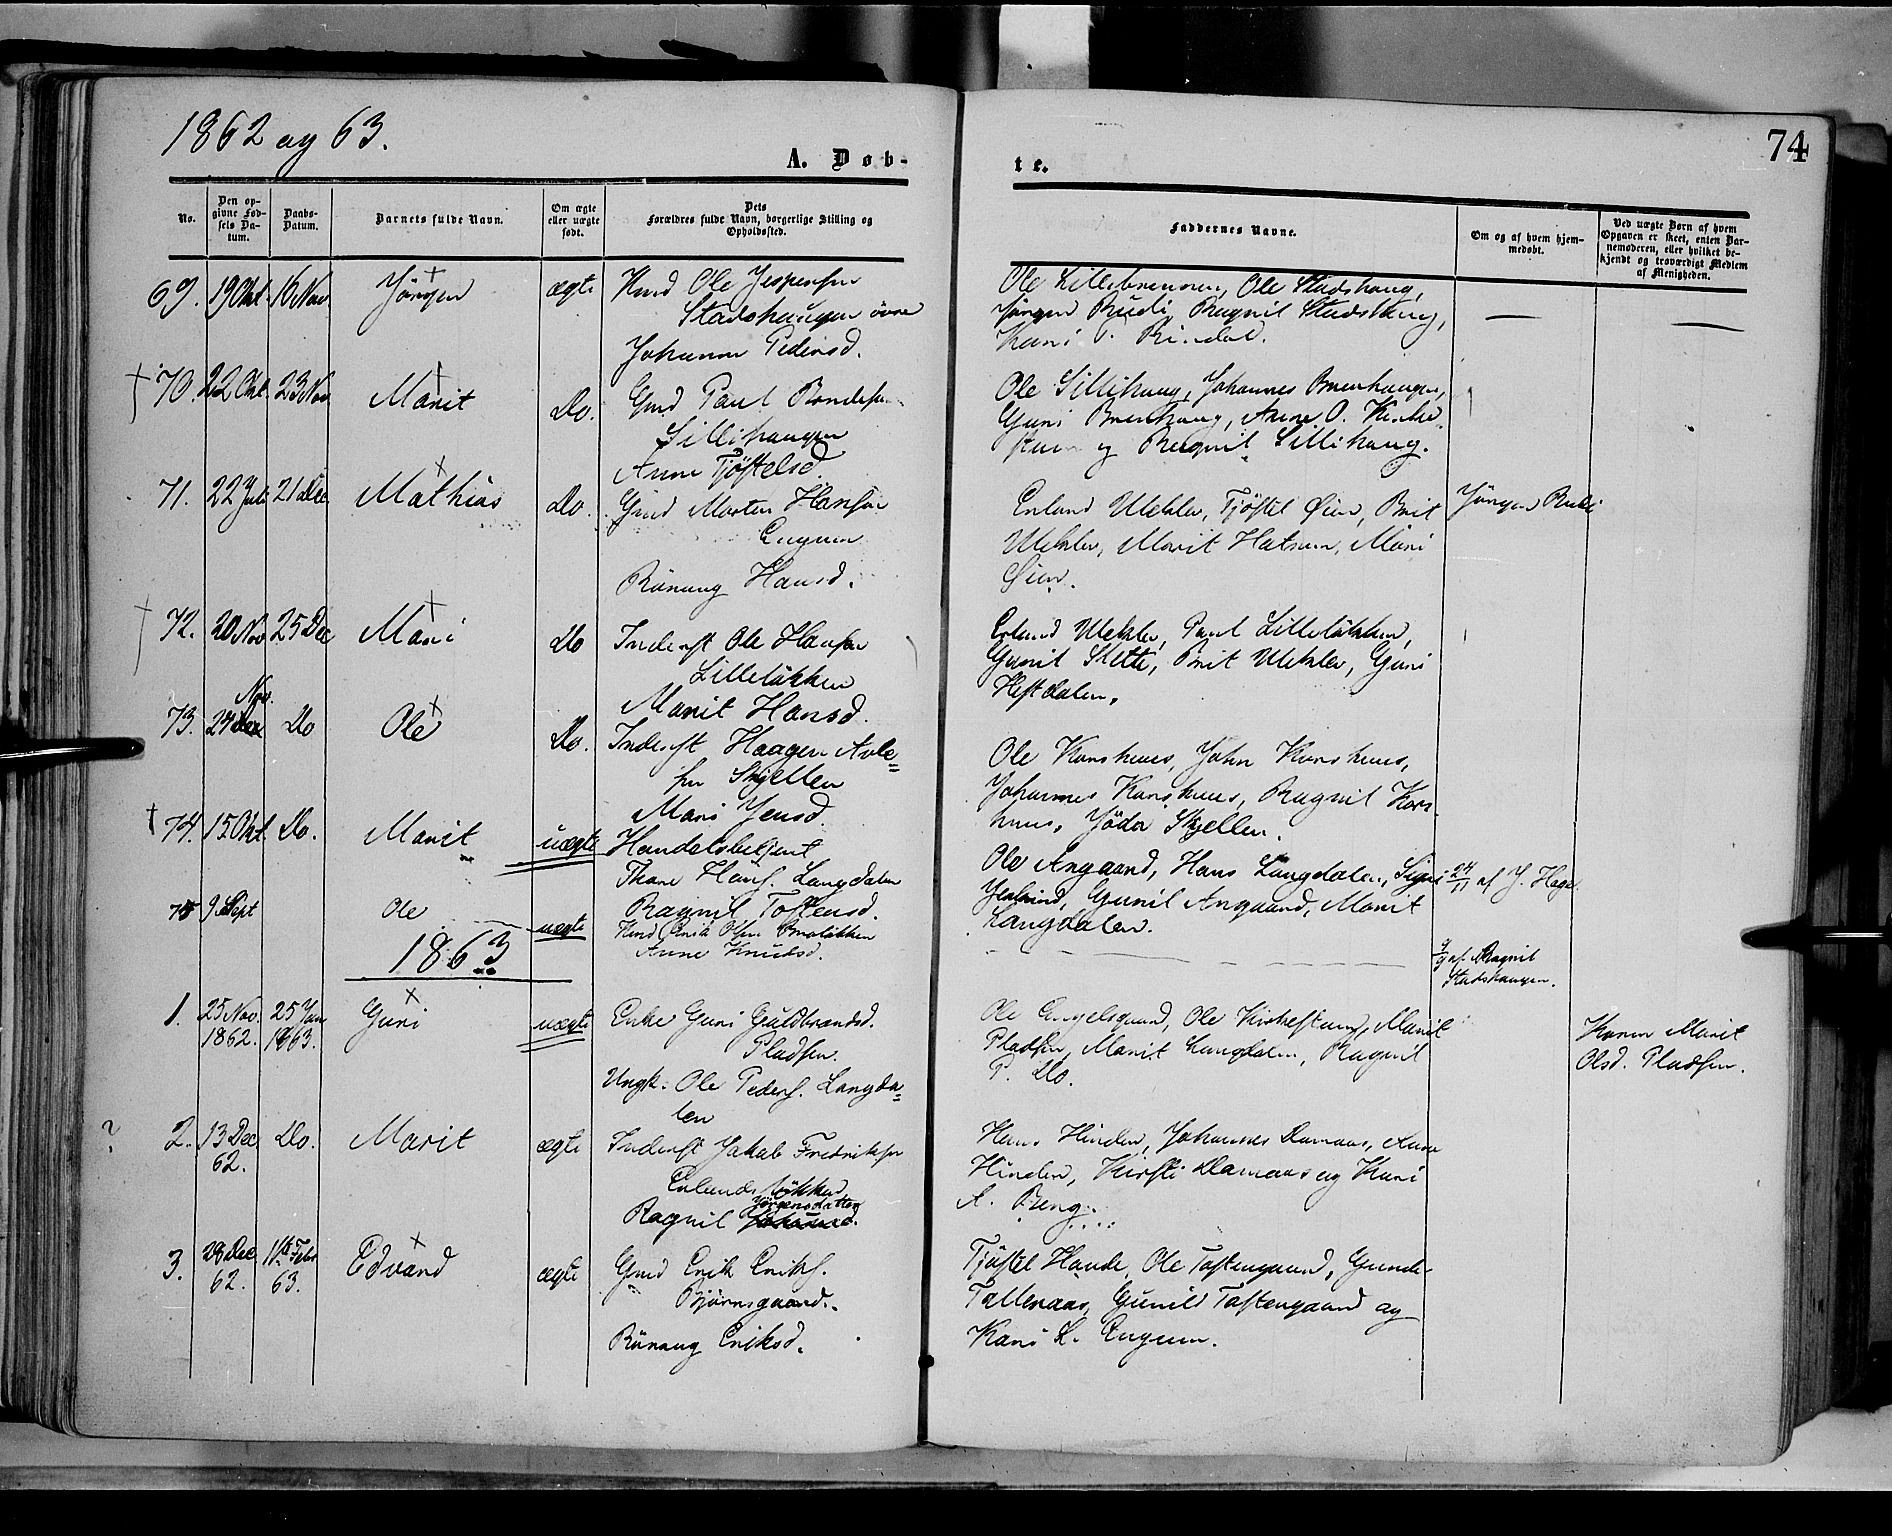 1862 og 63.
74
A. Døb-
te.
No.
Den op-
givne Fød-
sels Da-
tum.
Daabs-
Datum.
Barnets fulde Navn.
Om ægte
eller uægte
født.
Dets
Forældres fulde Navn, borgerlige Stilling og
Opholdssted.
Faddernes Navne.
Om og af hvem hjem-
medøbt.
Ved uægte Børn af hvem
Opgaven er skeet, enten Bar-
nemoderen, eller hvilket be-
kjendt og troværdigt Medlem
af Menigheden.
69. 19 Okt. 16 Nov. Jörgen ægte Hmd Ole Jespersen
Stadshaugen övre
Johanne Pedersd.
Ole Lillebrennen, Ole Stadshaug,
Jörgen Rudi, Ragnil Stadshaug,
Kari P. Rindal.
70. 22 Okt. 23 Nov Marit Do. Gmd Paul
Sillihaugen
Anne Tjöstelsd.
Ole Sillihaug, Johannes Brenhaugen,
Guri Brenhaug, Anne O.
og Ragnil Sillihaug.
71. 22 Juli 21 Dec Mathias Do. Gmd Morten Hansen
Rönaug Hansd.
Erland Ulekler, Tjöstel Öien, Brit
Ulekler, Marit Hatrum, Mari
Öien.
Jörgen Rudi
72. 20 Nov 25 Dec Mari Do Inderst Ole Hansen
Lillelökken
Marit Hansd.
Erland Ulekler, Paul Lillelökken,
Gunil Slette, Brit Ulekler, Guri
Heftdalen.
73. Nov.
24 Do Ole Do. Inderst Haagen Avle=
sen Skjellen
Mari Jensd.
Ole Korshuus, John Korshuus,
Johannes Korshuus, Ragnil Kors
huus, Jöda Skjellen.
74. 15 Okt. Do. Marit uægte Handelsbetjent
Thore Hans. Langdalen
Ragnil Tostensd.
Ole Angaard, Hans Langdalen, Signe
Gunil Angaard, Marit
Langdalen.
24/11 af J. Hage
75 9 Sept Ole uægte Hmd Erik Olsen
Anne Knudsd.
9/9 af Ragnil
Stadshaugen.
1863
1. 25 Nov.
1862. 25 Jan
1863. Guri uægte Enke Guri Guldbrandsd.
Pladsen.
Ungk. Ole Peders. Langda=
len
Ole Engelsgaard, Ole Kirkestuen, Marit
Pladsen, Marit Langdalen, Ragnil
P. Do.
Konen Marit
Olsd. Pladsen.
2. 13 Dec
62. Do. Marit ægte Inderst Jakob Fredriksen
Erlandslökken
Jörgensdatter
Ragnil
Hans Hindlen, Johannes Damaas, Anne
Hindlen, Kirsti Damaas og Kari
A. Beng.
3. 28 Dec
62. 11te Febr
63. Edvard ægte Gmd Erik Eriks.
Björnsgaard.
Rönaug Eriksd.
Tjöstel Haude, Ole Tostengaard, Gunde
Tallenaas, Gunild Tostengaard og
Kari L. Engum.